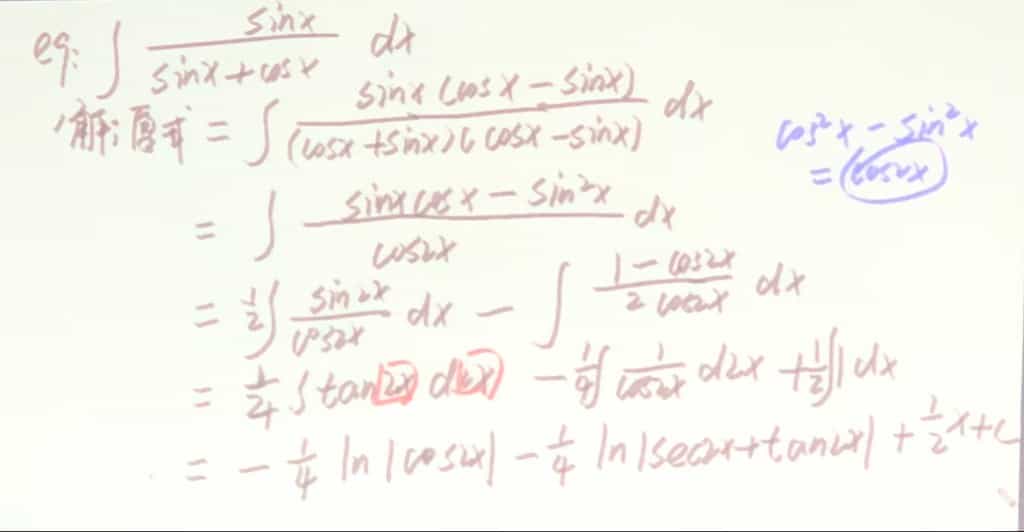 eg: ∫ sinx / (sinx + cosx) dx
解:原式 = ∫ sinx (cosx − sinx) / (cosx + sinx)(cosx − sinx) dx
cos²x − sin²x
= cos2x
= ∫ (sinx cosx − sin²x) / cos2x dx
= 1/2 ∫ sin2x / cos2x dx − ∫ (1 − cos2x) / (2 cos2x) dx
= 1/4 ∫ tan2x d2x − 1/4 ∫ 1 / cos2x d2x + 1/2 ∫ 1 dx
= − 1/4 ln |cos2x| − 1/4 ln |sec2x + tan2x| + 1/2 x + c